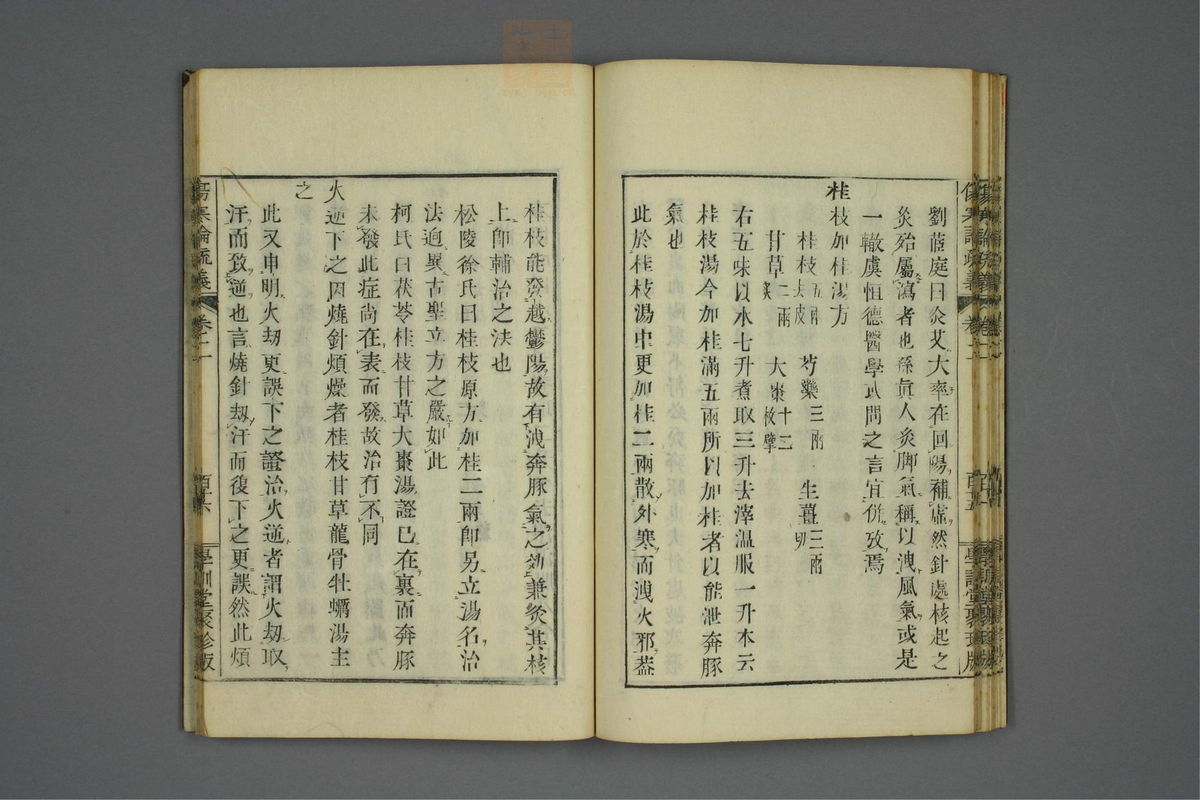 劉茝庭曰灸艾大率在回陽補虛然針處核起之
灸殆屬瀉者也孫眞人灸脚氣稱以洩風氣或是
一轍虞恒德醫學或問之言宜併攷焉
桂枝加桂湯方
桂枝五兩去皮 芍藥三兩 生薑三兩切
甘草二兩炙 大棗十二枚擘
右五味以水七升煮取三升去滓温服一升本云
桂枝湯今加桂滿五兩所以加桂者以能泄奔豚
氣也
此於桂枝湯中更加桂二兩散外寒而洩火邪葢
傷寒論疏義 卷二 百五 學訓堂聚珍版
桂枝能發越鬱陽故有洩奔豚氣之効兼灸其核
上卽輔治之法也
松陵徐氏曰桂枝原方加桂二兩卽另立湯名治
法逈異古聖立方之嚴如此
柯氏曰茯苓桂枝甘草大棗湯證已在裏而奔豚
未發此症尚在表而發故治有不同
火逆下之因燒針煩燥者桂枝甘草龍骨牡蠣湯主
之
此又申明火劫更誤下之證治火逆者謂火劫取
汗而致逆也言燒針劫汗而後下之更誤然此煩
傷寒論疏義 卷二 百六 學訓堂聚珍版